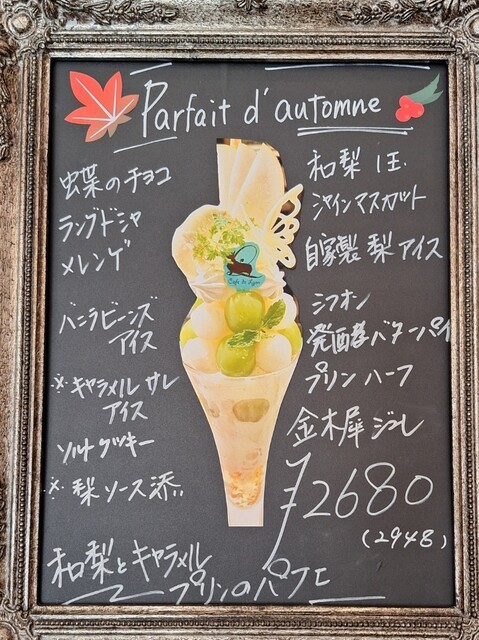 Parfait d'automne
蝶のチョコ
ラングドシャ
メレンゲ
バニラビーンズ
アイス
※キャラメルサレ
アイス
ソルトクッキー
※梨ソース添
和梨 1玉
シャインマスカット
自家製 梨アイス
シフォン
発酵バターパイ
プリンハーフ
金木犀ジュレ
¥2680
(2948)
Cafe de Lyon
和梨とキャラメル
プリンのパフェ